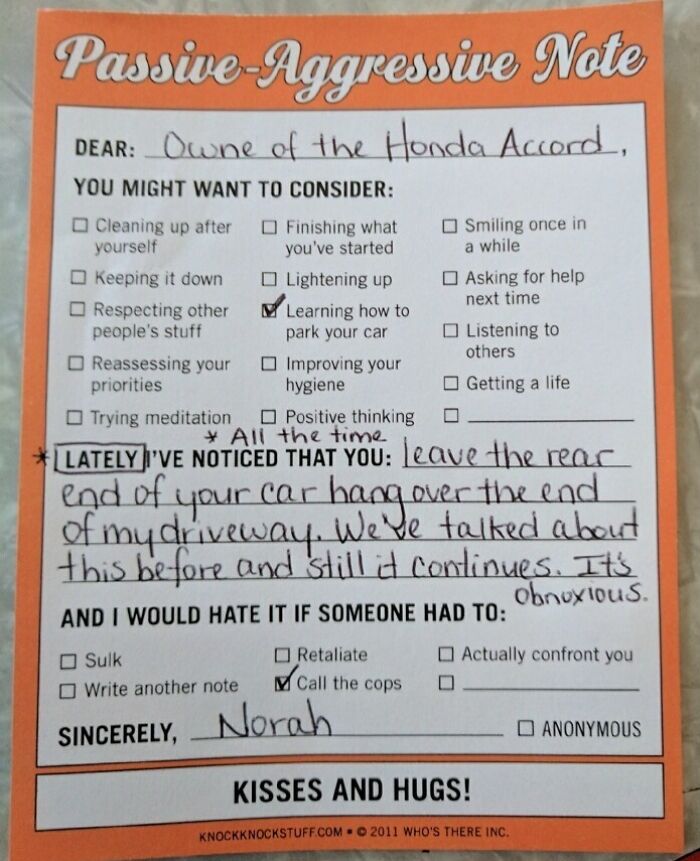 Passive-Aggressive Note
DEAR: Owne of the Honda Accord,
YOU MIGHT WANT TO CONSIDER:
☐ Cleaning up after yourself
☐ Keeping it down
☐ Respecting other people's stuff
☐ Reassessing your priorities
☐ Trying meditation
☐ Finishing what you've started
☐ Lightening up
☑ Learning how to park your car
☐ Improving your hygiene
☐ Positive thinking
☐ Smiling once in a while
☐ Asking for help next time
☐ Listening to others
☐ Getting a life
☐
* All the time
* LATELY I'VE NOTICED THAT YOU: leave the rear
end of your car hang over the end
of my driveway. We've talked about
this before and still it continues. It's
obnoxious.
AND I WOULD HATE IT IF SOMEONE HAD TO:
☐ Sulk
☐ Write another note
☐ Retaliate
☑ Call the cops
☐ Actually confront you
☐
SINCERELY, Norah ☐ ANONYMOUS
KISSES AND HUGS!
KNOCKKNOCKSTUFF.COM • © 2011 WHO'S THERE INC.